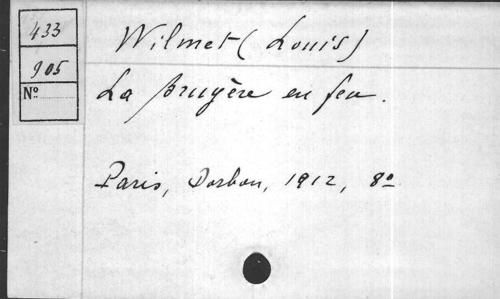 433
905
Nº
Wilmet (Louis)
La Bruyère en feu.
Paris, Dorbon, 1912, 8º